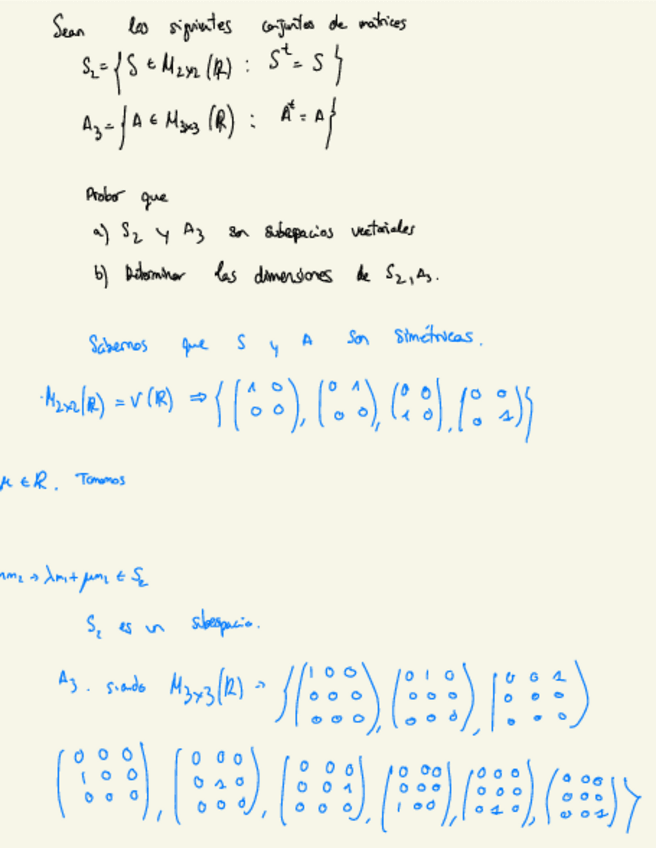 Sean los siguientes conjuntos de matrices
S₂ = { S ∈ M₂ₓ₂ (ℝ) : Sᵗ = S }
A₃ = { A ∈ M₃ₓ₃ (ℝ) : Aᵗ = A }
Probar que
a) S₂ y A₃ son subespacios vectoriales
b) Determinar las dimensiones de S₂, A₃.
Sabemos que S y A son simétricas.
· M₂ₓ₂(ℝ) = V(ℝ) ⇒ { (1 0 / 0 0), (0 1 / 0 0), (0 0 / 1 0), (0 0 / 0 1) }
μ ∈ ℝ. Tomamos
m₂ → λm₁ + μm₂ ∈ S₂
S₂ es un subespacio.
A₃. siendo M₃ₓ₃(ℝ) → { (1 0 0 / 0 0 0 / 0 0 0), (0 1 0 / 0 0 0 / 0 0 0), (0 0 1 / 0 0 0 / 0 0 0)
(0 0 0 / 1 0 0 / 0 0 0), (0 0 0 / 0 1 0 / 0 0 0), (0 0 0 / 0 0 1 / 0 0 0), (0 0 0 / 0 0 0 / 1 0 0), (0 0 0 / 0 0 0 / 0 1 0), (0 0 0 / 0 0 0 / 0 0 1) }